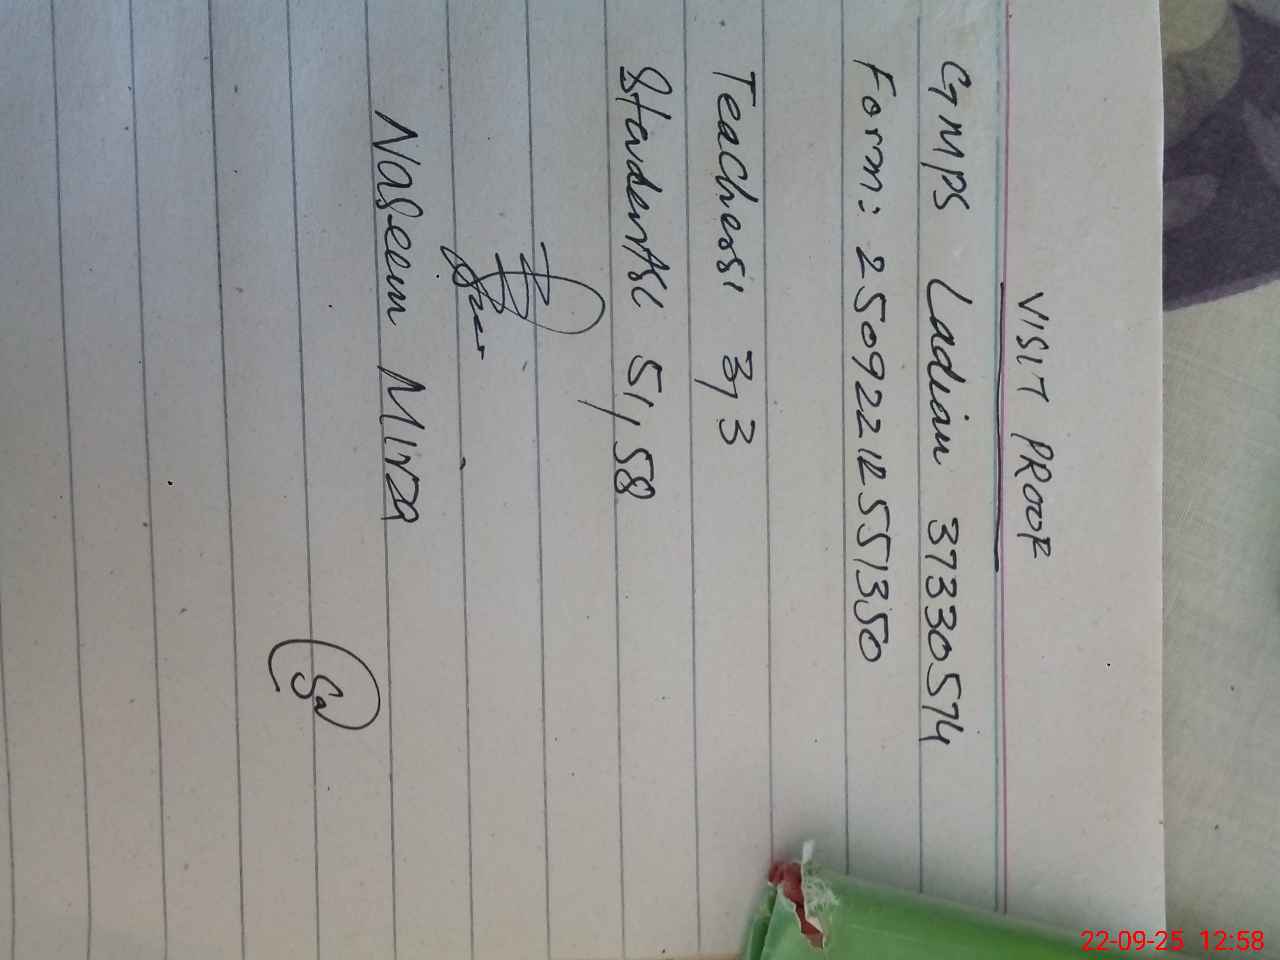 VISIT PROOF
GMPS Ladian 37330574
Form: 250922125551350
Teachers: 3,3
Students: 51,58
Naseem Mirza
22-09-25 12:58